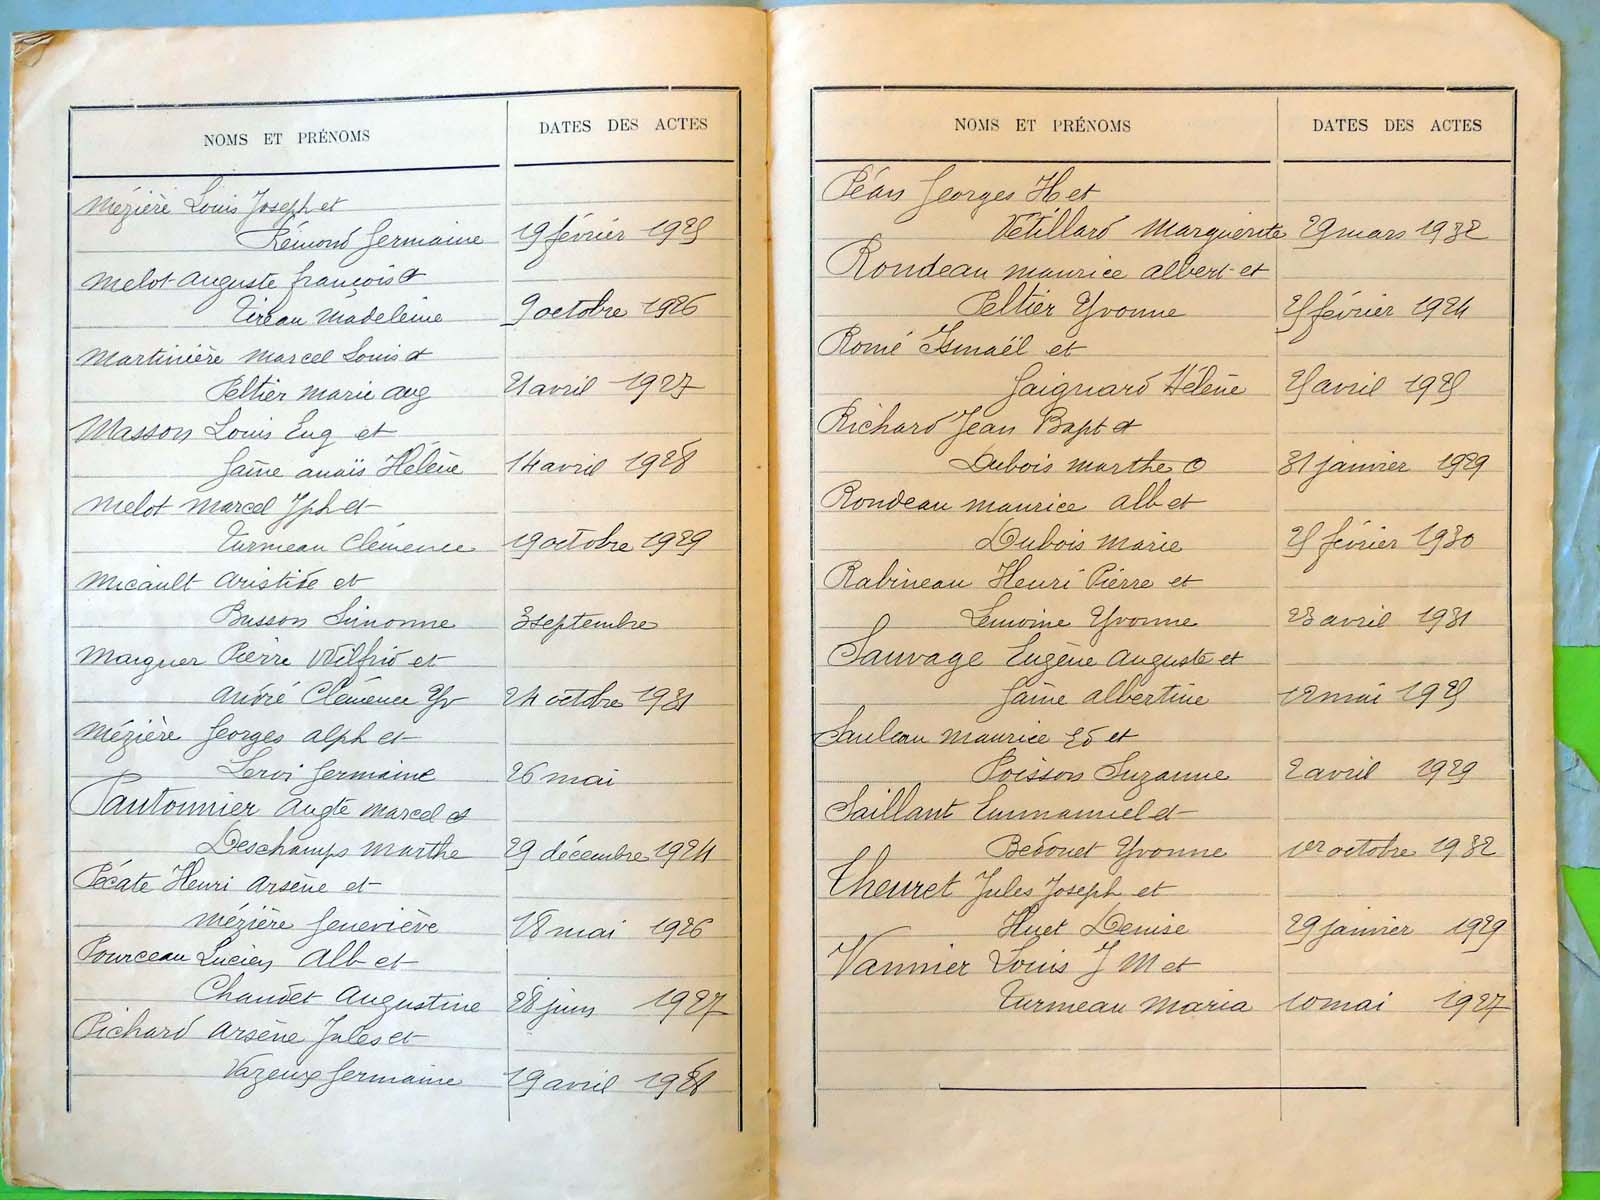 NOMS ET PRÉNOMS DATES DES ACTES
Mézière Louis Joseph et
Rémond Germaine 19 février 1925
Melot Auguste François et
Tireau Madeleine 9 octobre 1926
Martinière Marcel Louis et
Peltier Marie Aug 21 avril 1927
Masson Louis Eug et
Jaine Anaïs Hélène 14 avril 1928
Melot Marcel Jph et
Turmeau Clémence 19 octobre 1929
Micault Aristide et
Busson Simonne 3 septembre
Maiguer Pierre Wilfrid et
André Clémence Yv 24 octobre 1931
Mézière Georges Alph et
Leroi Germaine 26 mai
Pautonnier Augte Marcel et
Deschamps Marthe 29 décembre 1924
Pécate Henri Arsène et
Mézière Geneviève 18 mai 1926
Pourceau Lucien Alb et
Chaudet Augustine 28 juin 1927
Pichard Arsène Jules et
Vazeux Germaine 19 avril
NOMS ET PRÉNOMS DATES DES ACTES
Péan Georges H et
Vétillard Marguerite 29 mars 1932
Rondeau Maurice Albert et
Peltier Yvonne 25 février 1924
Romé Ismaël et
Gaignard Hélène 25 avril 1925
Richard Jean Bapt et
Dubois Marthe O 31 janvier 1929
Rondeau Maurice Alb et
Dubois Marie 25 février 1930
Rabineau Henri Pierre et
Lemoine Yvonne 23 avril 1931
Sauvage Eugène Auguste et
Jaine Albertine 12 mai 1925
Sauleau Maurice Ed et
Poisson Suzanne 2 avril 1929
Saillant Emmanuel et
Bedouet Yvonne 1er octobre 1932
Theuret Jules Joseph et
Huet Denise 29 janvier 1929
Vannier Louis J M et
Turmeau Maria 10 mai 1927